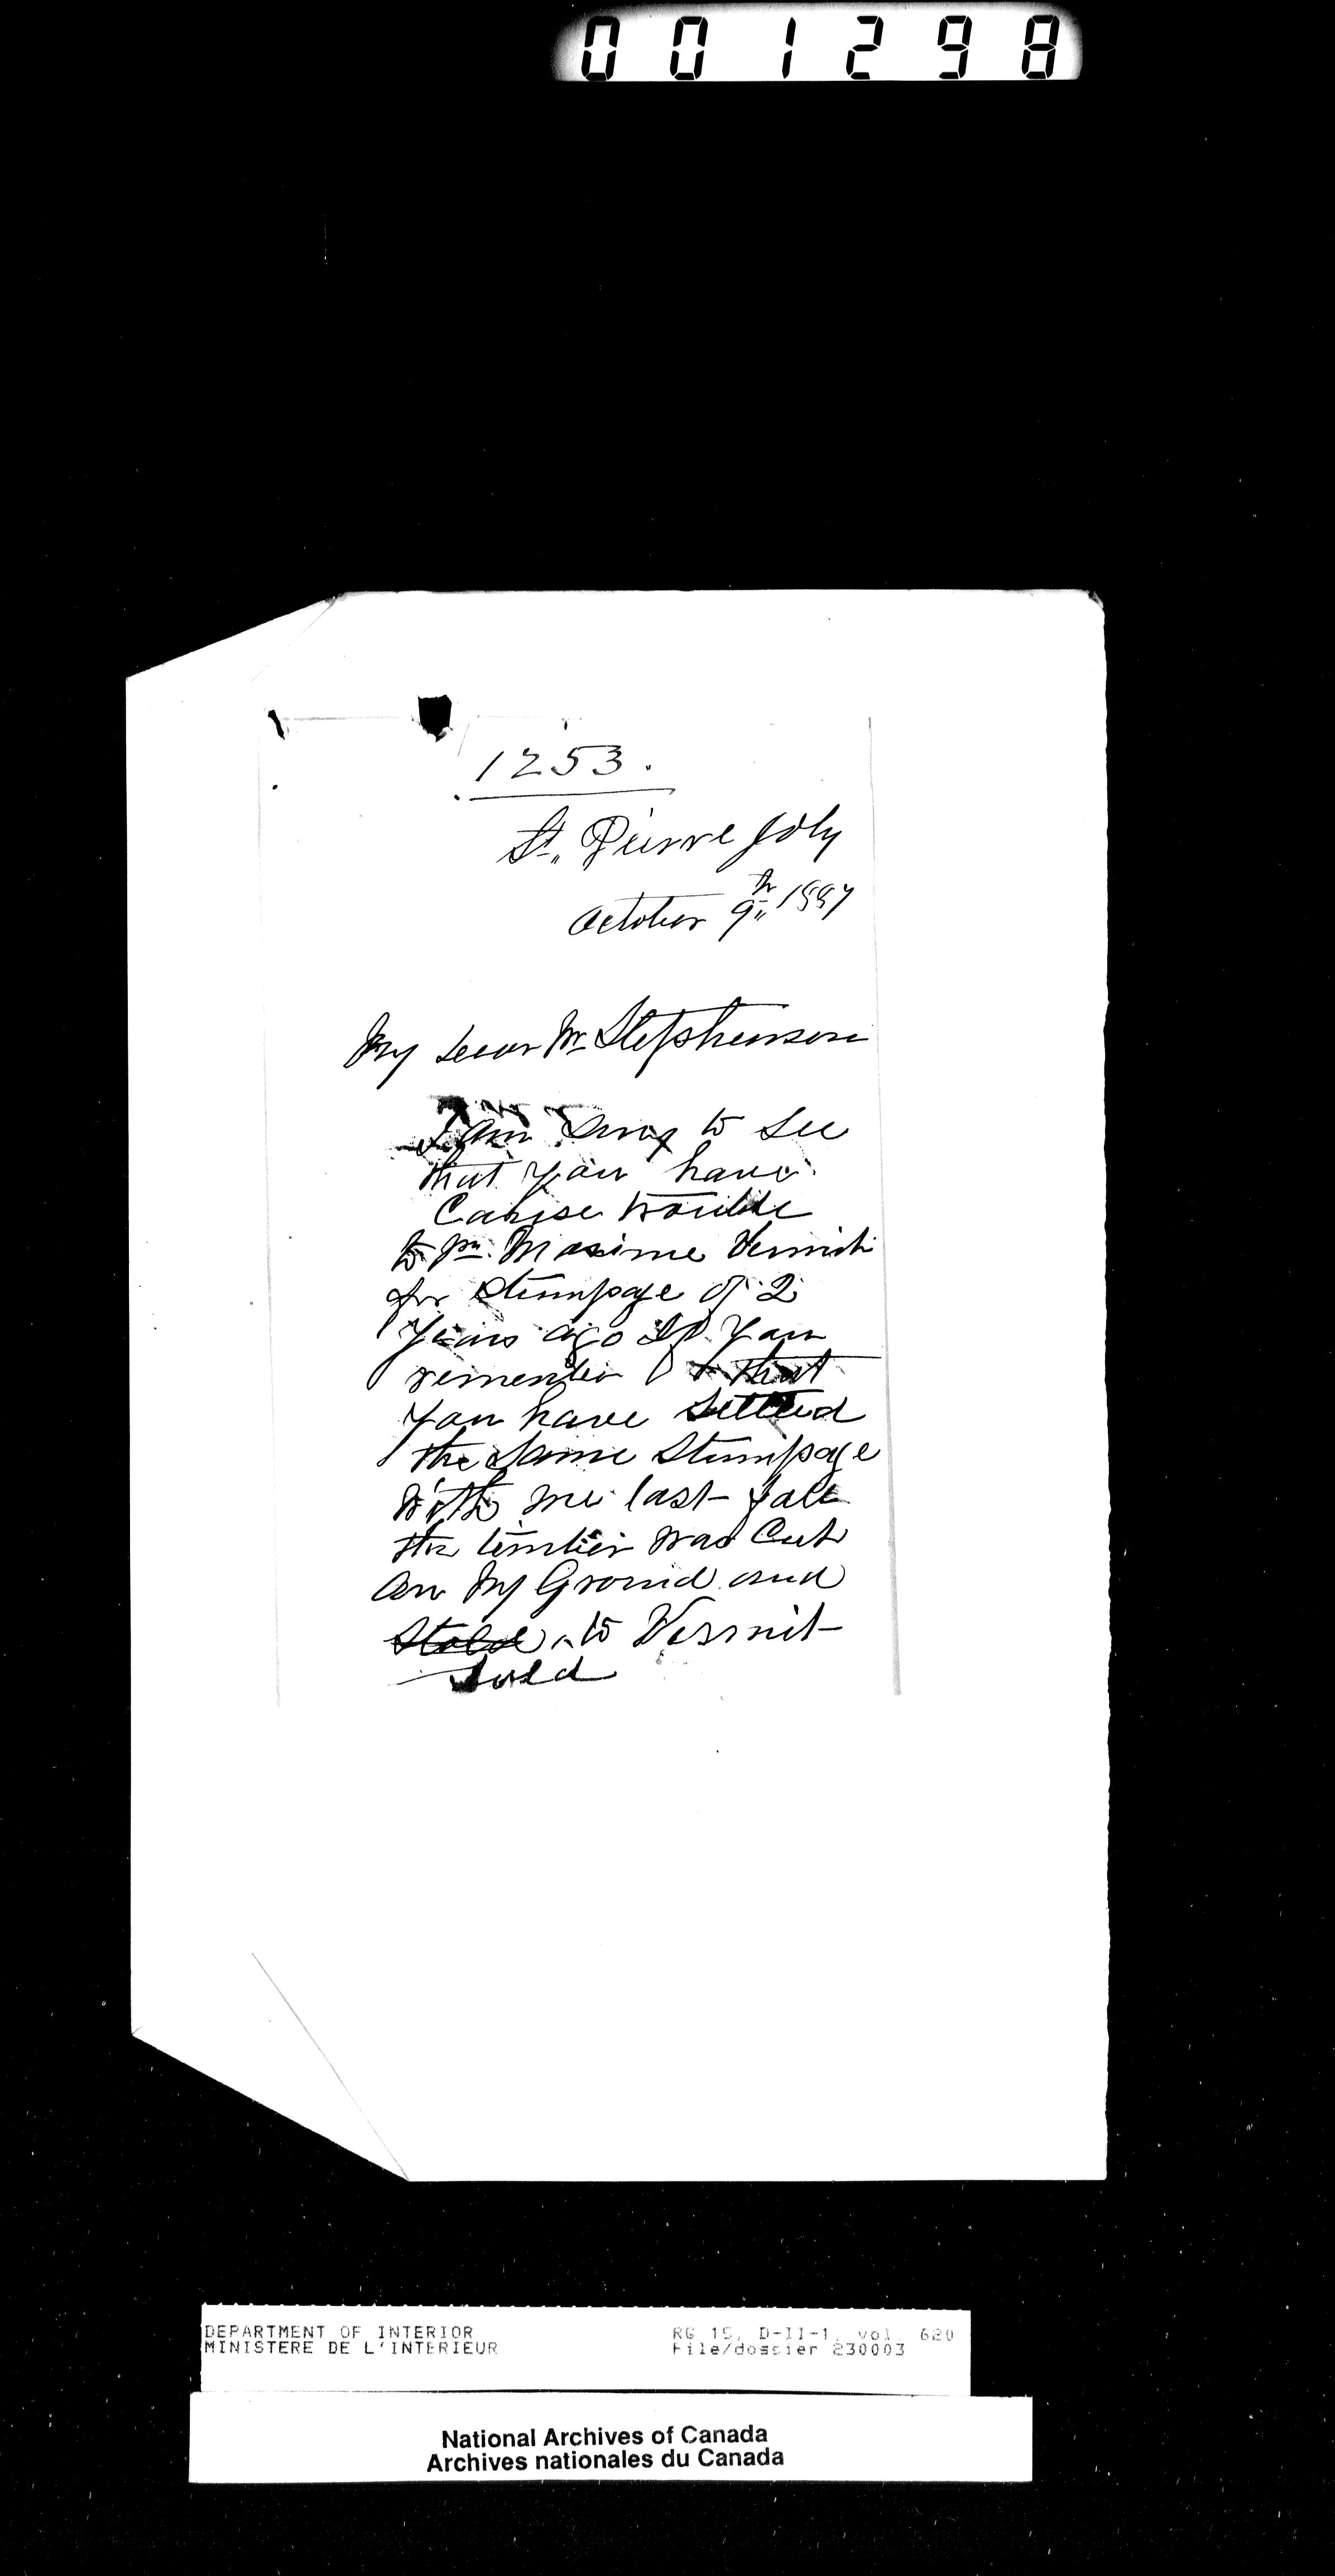 001298
1253.
St. Pierre Joly
October 9th 1897
My Dear Mr Stephenson
I am sorry to see
that you have
Cause trouble
to Mr Maxime Vermit
for Stumpage of 2
Years ago If You
remember that
You have Settled
the Same Stumpage
With me last fall
the timber was Cut
on My Ground and
Stold to Vermit
Sold
DEPARTMENT OF INTERIOR
MINISTERE DE L'INTERIEUR
RG 15, D-II-1, vol. 620
File/dossier 230003
National Archives of Canada
Archives nationales du Canada